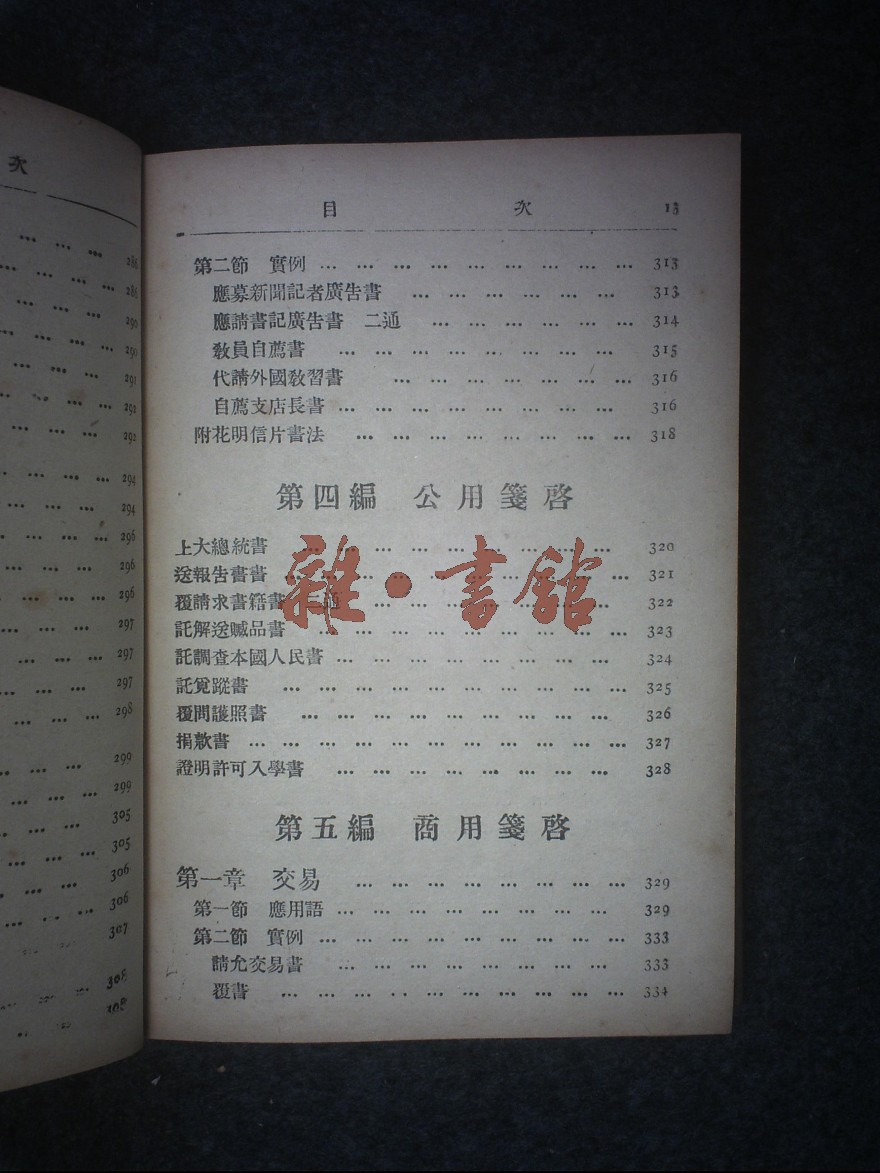 次
286
286
290
290
291
292
292
294
294
296
296
296
297
297
297
298
299
299
305
305
306
306
307
308
308
目 次 13
第二節 實例 … … … … … … … … … 313
應募新聞記者廣告書 … … … … … … 313
應請書記廣告書 二通 … … … … … … 314
敎員自薦書 … … … … … … … … 315
代請外國敎習書 … … … … … … … 316
自薦支店長書 … … … … … … … … 316
附花明信片書法 … … … … … … … … 318
第四編 公用箋啓
上大總統書 … … … … … … … … … 320
送報告書書 … … … … … … … … … … 321
覆請求書籍書 二通 … … … … … … … 322
託解送贓品書 … … … … … … … … 323
託調查本國人民書 … … … … … … … … 324
託覓蹤書 … … … … … … … … … … 325
覆問護照書 … … … … … … … … … 326
捐款書 … … … … … … … … … … … 327
證明許可入學書 … … … … … … … … 328
第五編 商用箋啓
第一章 交易 … … … … … … … … 329
第一節 應用語 … … … … … … … … 329
第二節 實例 … … … … … … … … … 333
請允交易書 … … … … … … … … 333
覆書 … … … … … … … … … … 334
雜·書館